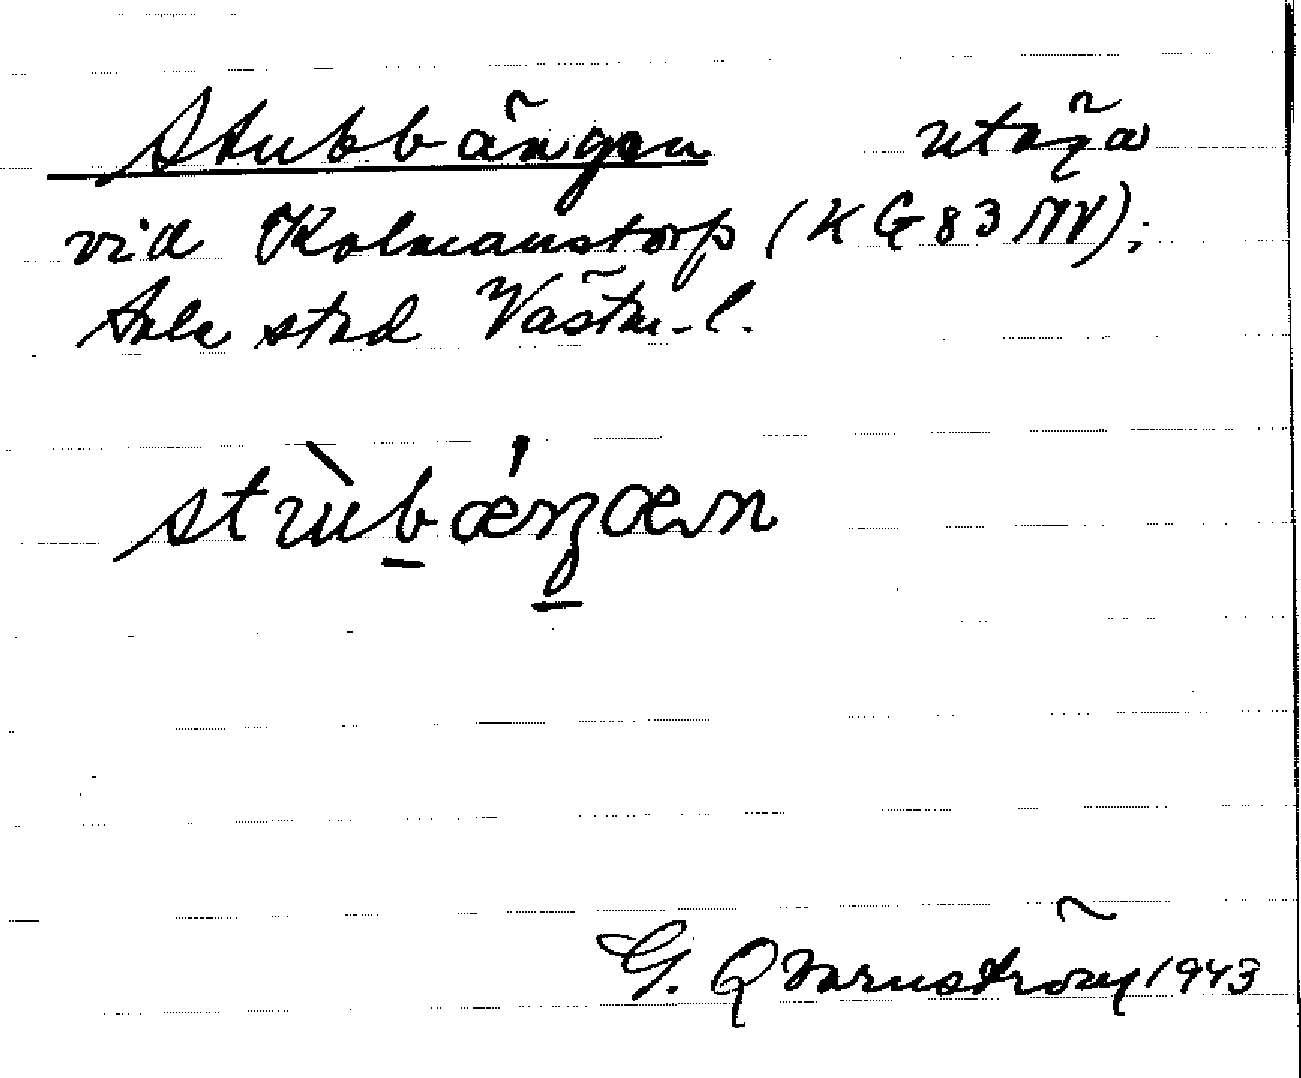 Stubbängen utäga
vid Kolmanstorp (KG83NV);
Sala stad Västm. l.
strùbǽnzæn
G. Qvarnström 1943